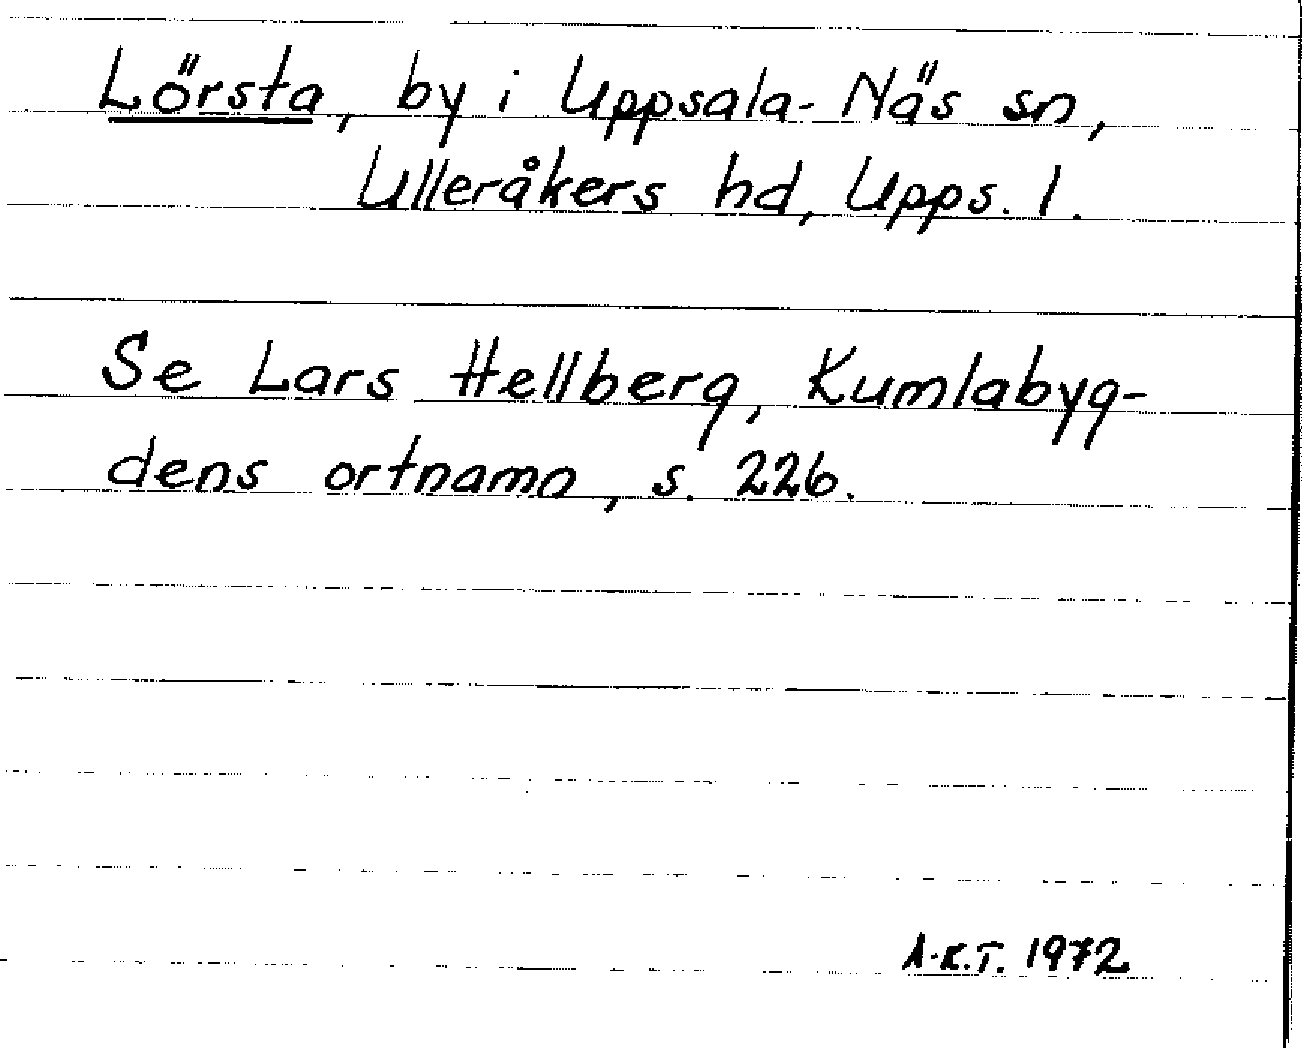 Lörsta, by i Uppsala-Näs sn,
Ulleråkers hd, Upps. l.
Se Lars Hellberg, Kumlabyg-
dens ortnamn, s. 226.
A-K.T. 1972